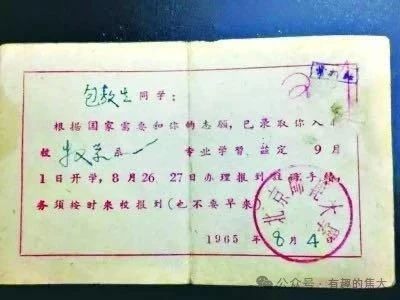 包 生同学：
根据国家需要和你的志愿，已录取你入
校 系 专业学習。 定 9月
1日开学，8月26 27日办理报到 手续，
务须按时来校报到（也不要早来）
北京师范大学
1965 年 8 月 4 日
公众号 · 有趣的焦大